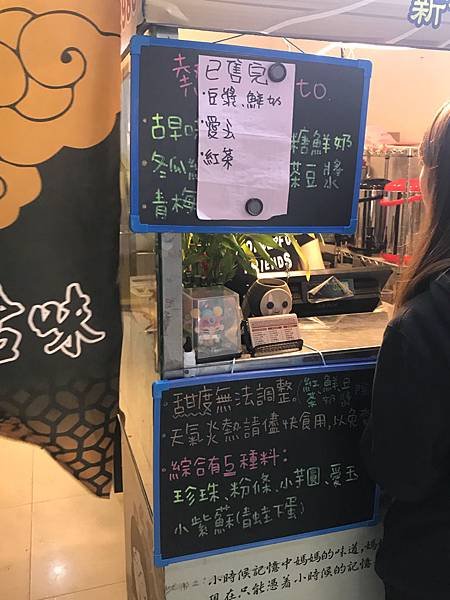 新
熱
to.
已售完
·豆漿、鮮奶
·愛玉
·紅茶
古早味
糖鮮奶
冬瓜
茶豆漿
青梅
古味
FRIENDS
·甜度無法調整。(紅茶 鮮奶 豆漿 除
·天氣炎熱請儘快食用,以免
·綜合有5種料:
珍珠、粉條、小芋圓、愛玉
小紫蘇(青蛙下蛋)
小時候記憶中媽媽的味道,媽
現在只能憑着小時候的記憶